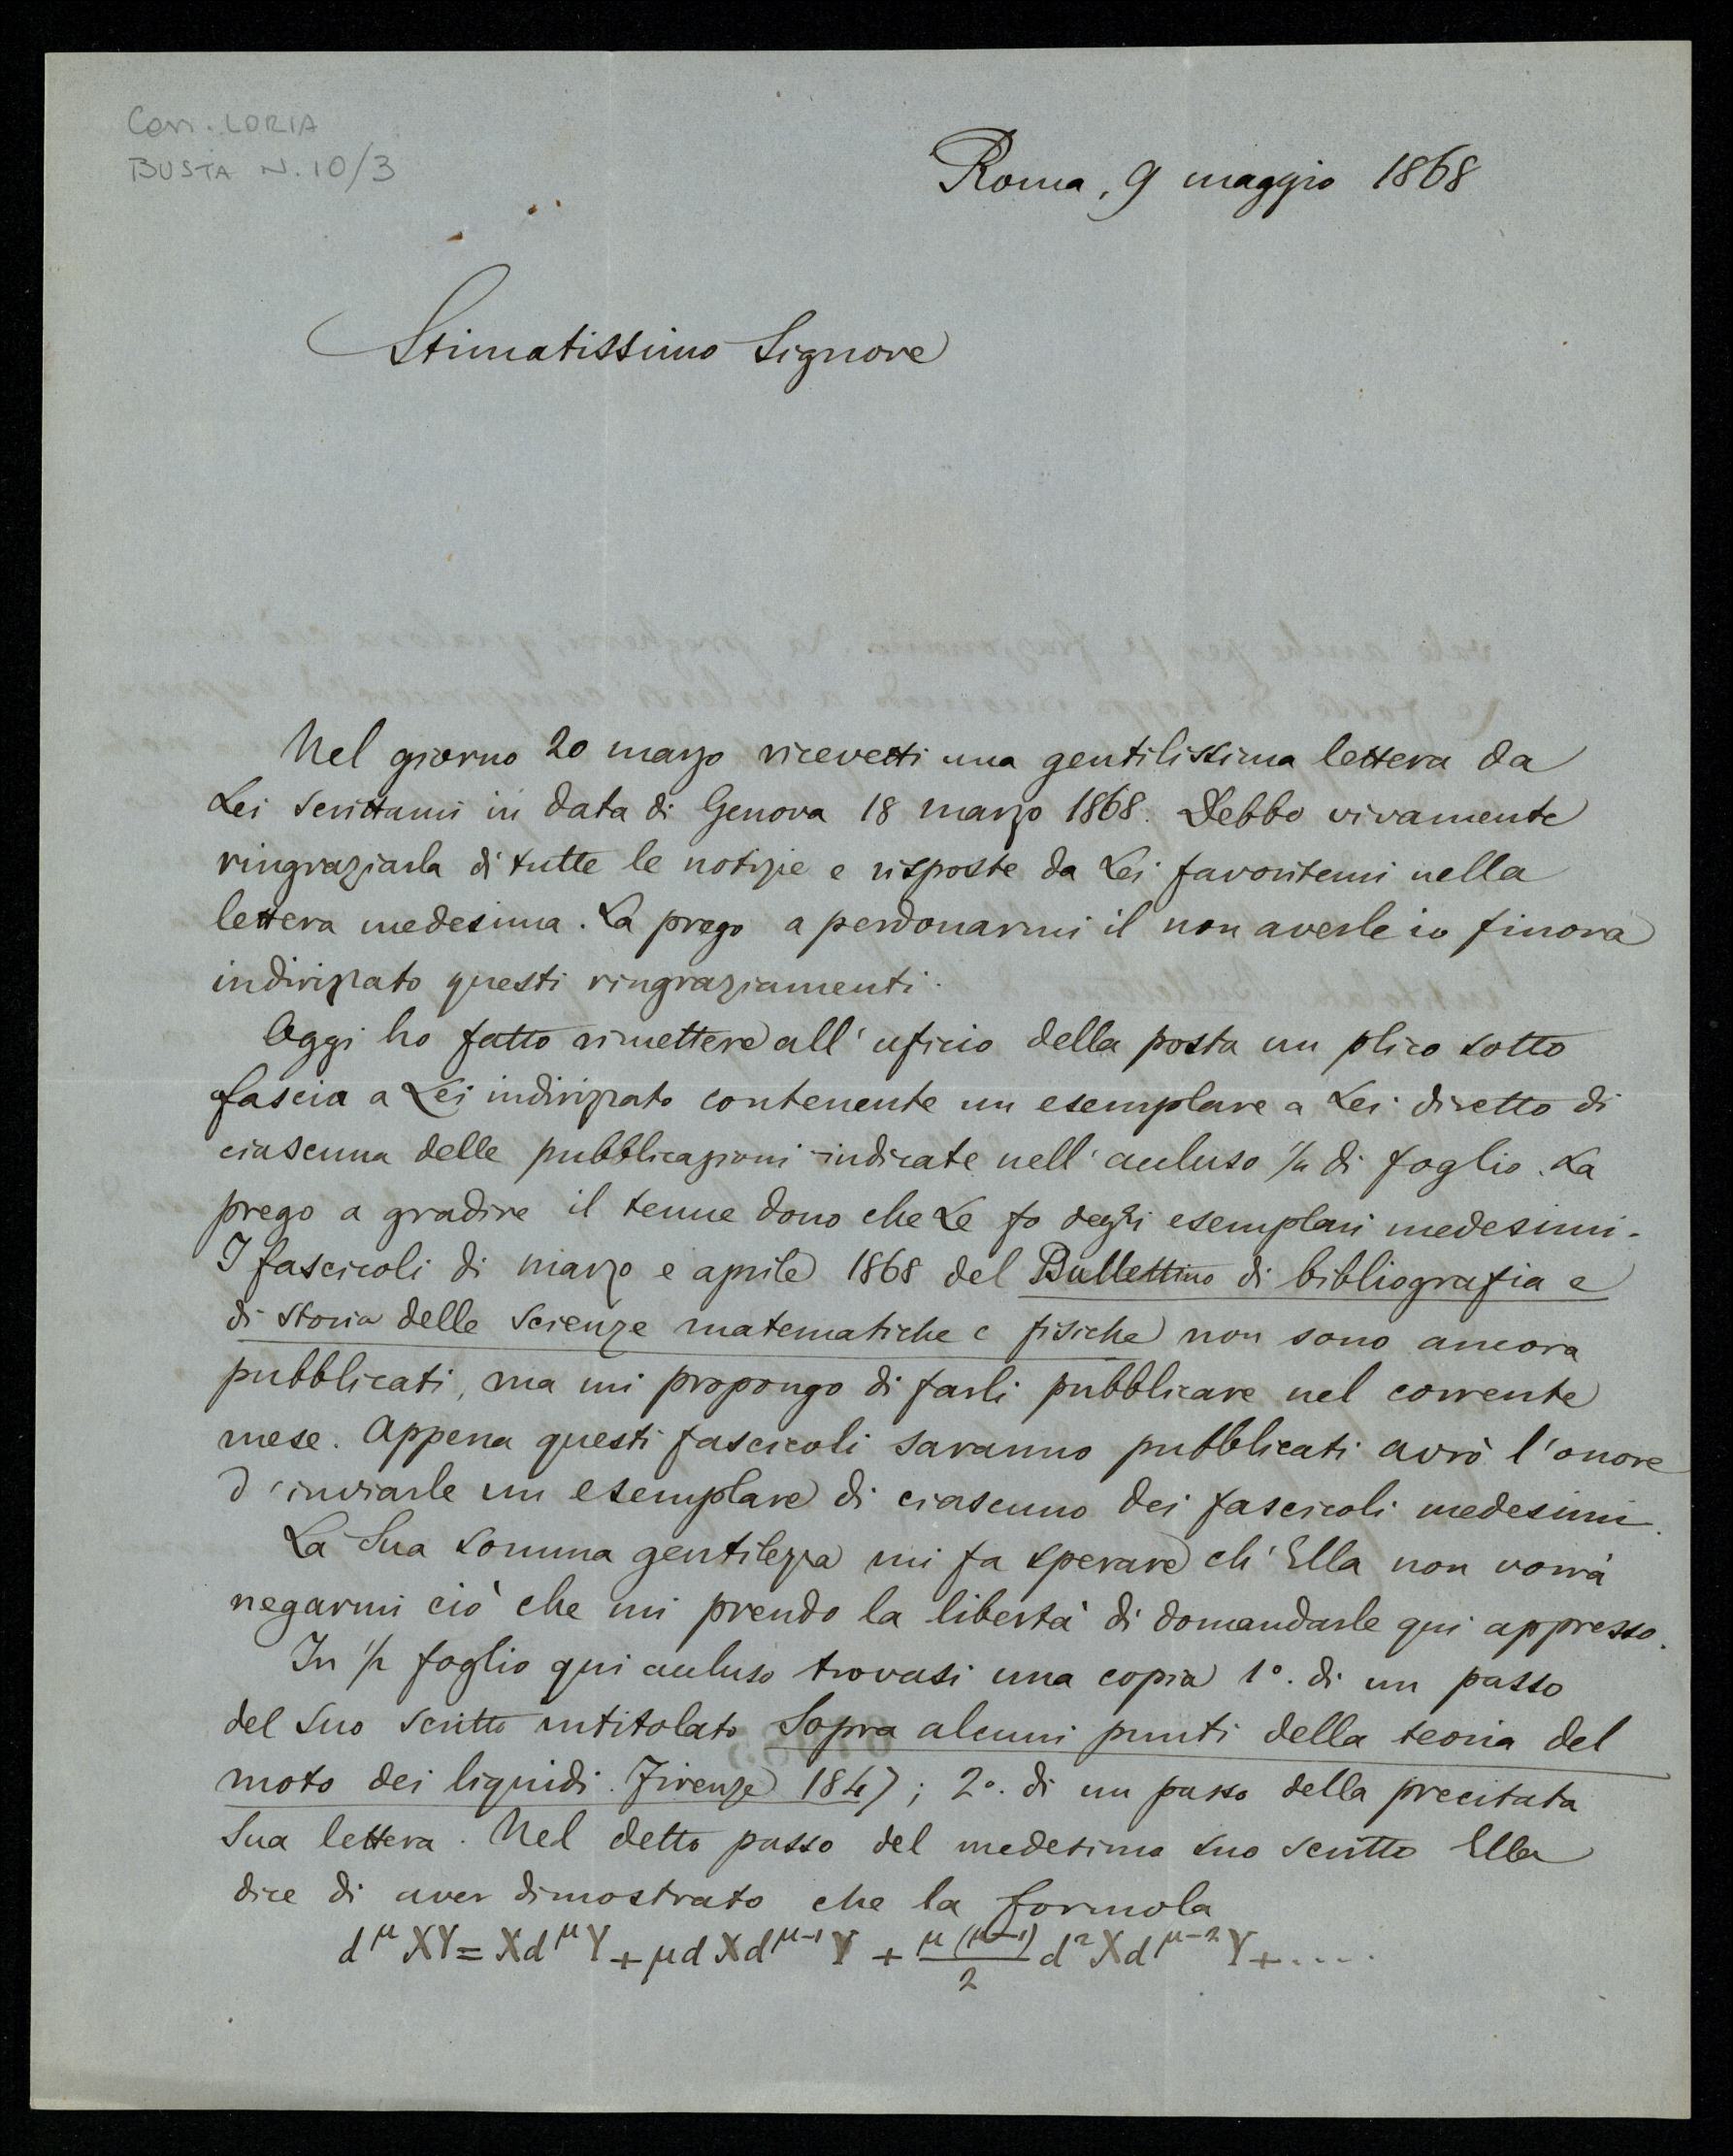 Corr. LORIA
BUSTA N. 10/3
Roma, 9 maggio 1868
Stimatissimo Signore
Nel giorno 20 marzo ricevetti una gentilissima lettera da
Lei scrittami in data di Genova 18 marzo 1868. Debbo vivamente
ringraziarla di tutte le notizie e risposte da Lei favoritemi nella
lettera medesima. La prego a perdonarmi il non averle io finora
indirizzato questi ringraziamenti.
Oggi ho fatto rimettere all'uficio della posta un plico sotto
fascia a Lei indirizzato contenente un esemplare a Lei diretto di
ciascuna delle pubblicazioni indicate nell'accluso di foglio. La
prego a gradire il tenue dono che Le fo degli esemplari medesimi.
I fascicoli di marzo e aprile 1868 del Bullettino di bibliografia e
di storia delle scienze matematiche e fisiche non sono ancora
pubblicati, ma mi propongo di farli pubblicare nel corrente
mese. Appena questi fascicoli saranno pubblicati avrò l'onore
d'inviarle un esemplare di ciascuno dei fascicoli medesimi.
La Sua somma gentilezza mi fa sperare ch'Ella non vorrà
negarmi ciò che mi prendo la libertà di domandarle qui appresso.
In 1/2 foglio qui accluso trovasi una copia 1°. di un passo
del Suo scritto intitolato Sopra alcuni punti della teoria del
moto dei liquidi. Firenze 1847; 2°. di un passo della precitata
Sua lettera. Nel detto passo del medesimo suo scritto Ella
dice di aver dimostrato che la formola
d^μ XY = X d^μ Y + μ d X d^{μ-1} Y + \frac{μ(μ-1)}{2} d² X d^{μ-2} Y + ....